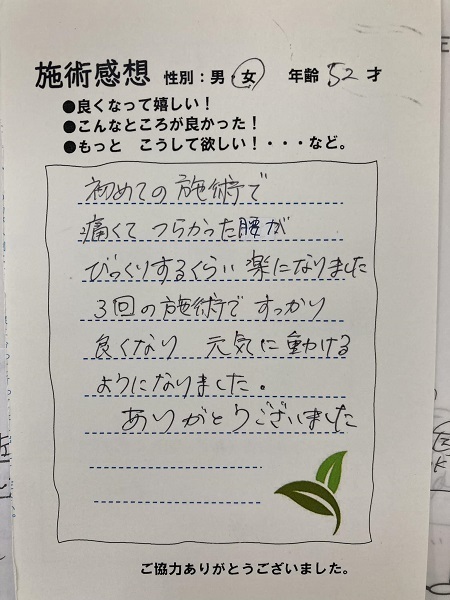 施術感想 性別：男・女 年齢 52 才
●良くなって嬉しい！
●こんなところが良かった！
●もっと こうして欲しい！・・・など。
初めての施術で
痛くて つらかった腰が
びっくりするくらい楽になりました
3回の施術で すっかり
良くなり 元気に動ける
ようになりました。
ありがとうございました
ご協力ありがとうございました。